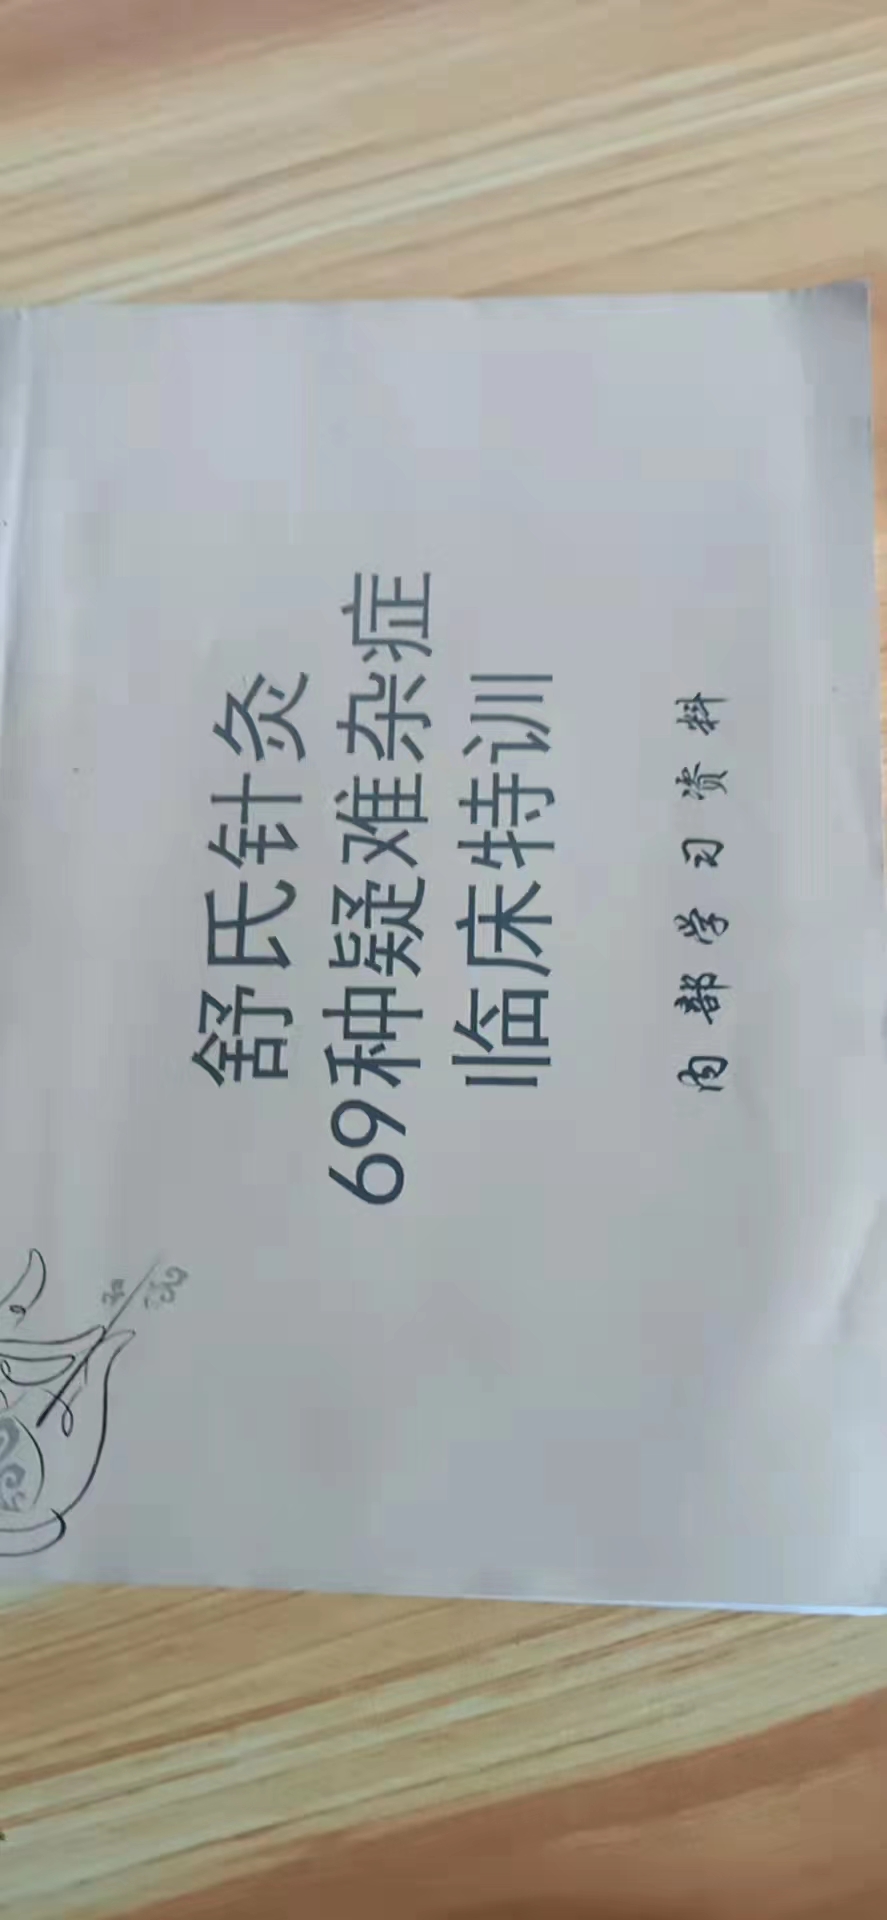 舒氏针灸
69种疑难杂症
临床特训
内部学习资料